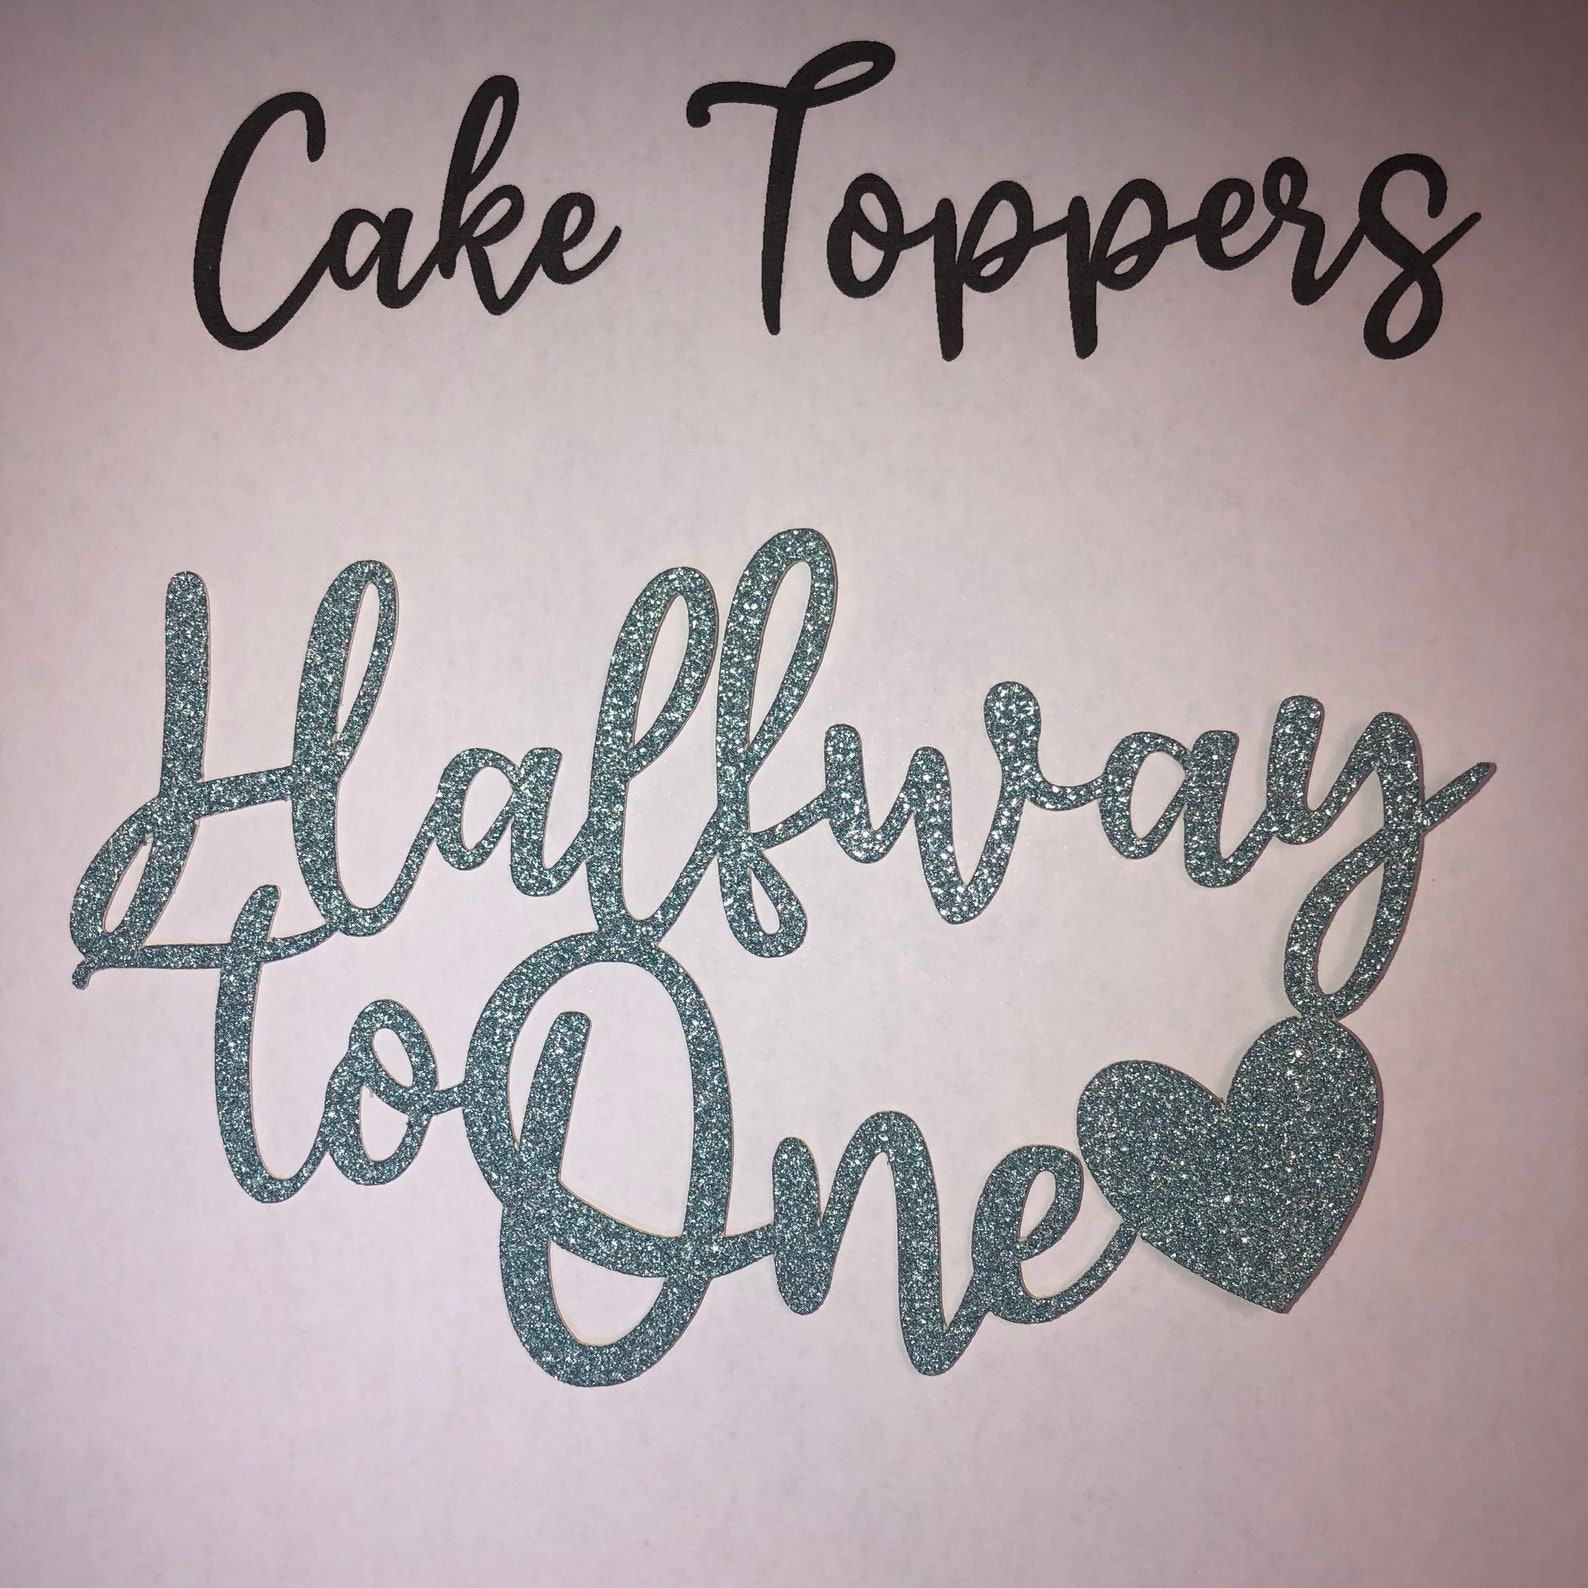 Cake Toppers
Halfway
to One